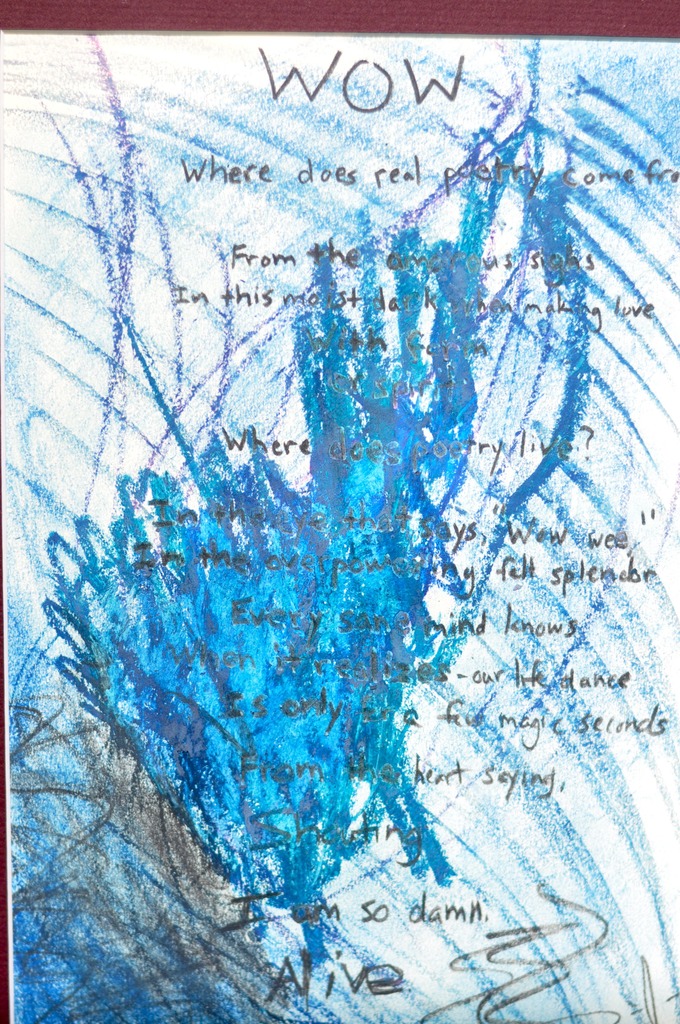 WOW
Where does real poetry come fro
From the amorous sighs
In this moist dark when making love
With form
Or spirit
Where does poetry live?
In the eye that says, "Wow wee,"
In the overpowering felt splendor
Every sane mind knows
When it realizes - our life dance
Is only for a few magic seconds
From the heart saying,
Shouting
I am so damn.
Alive